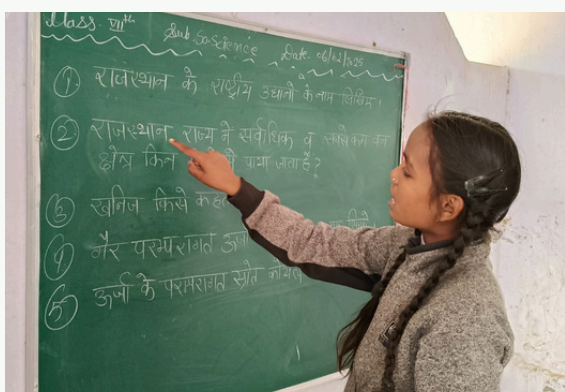 Class. VIIth Sub. So. Science Date. 06/02/2025
① राजस्थान के राष्ट्रीय उद्यानों के नाम लिखिए।
② राजस्थान राज्य में सर्वाधिक व सबसे कम वन
क्षेत्र किन पाया जाता है?
③ खनिज किसे कह
④ गैर परम्परागत ऊर्जा
⑤ ऊर्जा के परम्परागत स्रोत कोयल